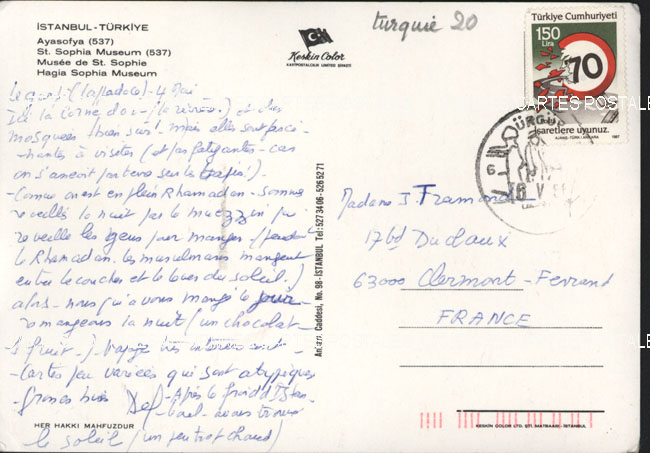 İSTANBUL-TÜRKİYE
Ayasofya (537)
St. Sophia Museum (537)
Musée de St. Sophie
Hagia Sophia Museum
Keskin Color
KARTPOSTALCILIK LIMITED ŞİRKETİ
turquie 20
Türkiye Cumhuriyeti
150
Lira
70
işaretlere uyunuz.
AJANS-TÜRK/ANKARA 1987
CARTES POSTALE
ÜRGÜP
6
(Cappadoce) - 4 Mai
la corne d'or - et des
mosquées mais elles sont
à visiter (et fatigantes - car
on s'assoit par terre sur les tapis!)
Comme on est en plein Rhamadan - sommes
réveillés la nuit par le muezzin qui
réveille les gens pour manger - (pendant
le Rhamadan les musulmans mangent
entre le coucher et le lever du soleil.)
alors - nous qui avons mangé le jour
remangeons la nuit (un chocolat
1 fruit -) Voyage très intéressant -
- Cartes peu variées qui sont atypiques
Grosses bises - Après le froid d'Istan-
boul - avons trouvé
le soleil (un peu trop chaud)
HER HAKKI MAHFUZDUR
Ankara Caddesi, No. 98-İSTANBUL Tel: 5273406-5265271
Madame J. Framond
17 bd Duclaux
63000 Clermont-Ferrand
FRANCE
KESKİN COLOR LTD. ŞTİ. MATBAASI-İSTANBUL